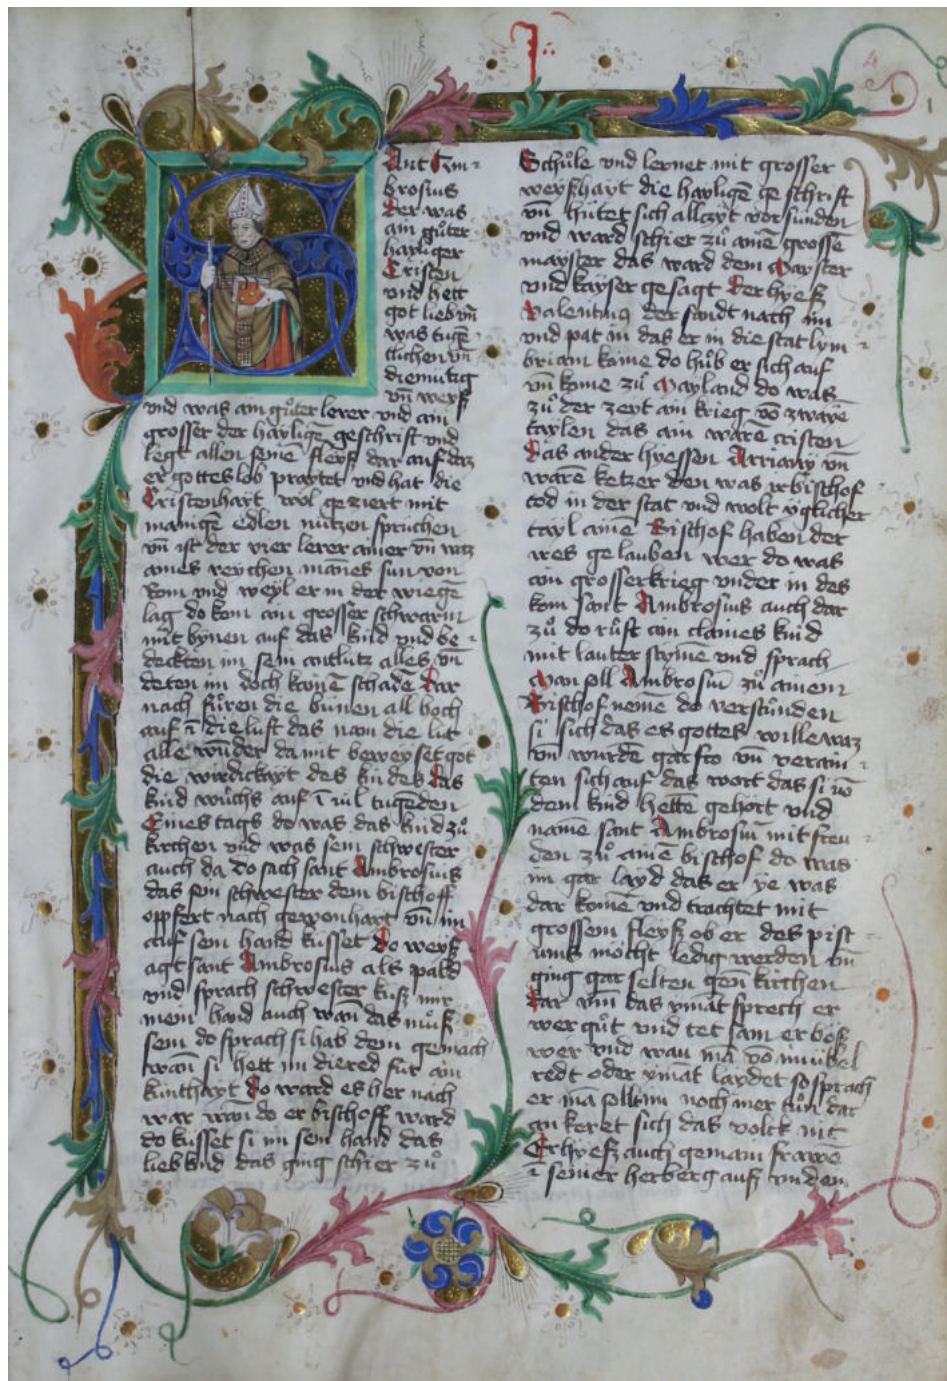 Ant Am-
brosius
der was
ain gůter
hayliger
Cristen
vnd hett
got lieb vñ
was tuge-
ntlichen vñ
diemütig
vñ weyß
vnd was ain gůter lerer vnd ain
grosser der haylige geschrift vnd
legt allen seinē fleyß dar auf daz
er gottes lob prayttet vnd hat die
Cristenhayt wol geziert mit
manige edlen nutzen sprüchen
vñ ist der vier lerer ainer vñ waz
aines reychen mānes sun von
Rom vnd weyl er in der wiegē
lag do kom ain grosser schwarm
mit bynen auf das kind vnd be-
deckten im sein antlütz alles vñ
deten im doch kainē schadē Dar
nach fůren die binnen all hoch
auf ī die luft das nam die lüt
alle wunder da mit beweyset got
die wirdickayt des kindes Das
kind wůchs auf ī vil tugenden
Eines tags do was das kind zů
kirchen vnd was sein schwester
auch da do sach sant Ambrosius
das sein schwester dem bischoff
opffert nach gewonhayt vñ im
auf sein hand küsset Do weyß
agt sant Ambrosius als pald
vnd sprach schwester küß mir
mein hand auch wañ das můß
sein do sprach si hab dein gemach
wañ si hett im diered für ain
kinthayt Do ward es her nach
war wan do er bischoff ward
do küsset si im sein hand das
lieb kind das ging schier zů
Schůle vnd lernet mit grosser
weyßhayt die haylige geschrift
vñ hütet sich allczyt vor sünden
vnd ward schier zů ainē grosse
mayster das ward dem Mayster
vnd kayser gesagt Der hyeß
Valentinus der sandt nach im
vnd pat in das er in die stat lym-
briam kome do hůb er sich auf
vñ kome zů Mayland do was
zů der zeyt ain krieg võ zwayē
taylen das ain warē cristen
Das ander hyessen Arriany vñ
warē ketzer den was ir bischof
tod in der stat vnd wolt yglicher
tayl ainē Bischof haben der
ires gelauben wer do was
ain grosser krieg vnder in des
kom sant Ambrosius auch dar
zů do růft ain claines kind
mit lauter stymē vnd sprach
Man soll Ambrosiū zů ainem
Bischof nemē do verstůnden
si sich das es gottes wille waz
vñ wurdē gar fro vñ verain-
ten sich auf das wort das si võ
dem kind hette gehört vnd
namē sant Ambrosiū mit freu-
den zů ainē bischof do was
im gar layd das er ye was
dar komē vnd trachtet mit
grossem fleyß ob er des pist-
ums möcht ledig werden vñ
ging gar selten gen kirchen
Dar vm das ymāt sprech er
wer gůt vnd tet sam er böß
wer vnd wan mā võ im übel
redt oder ymāt laydet so sprach
er mā sollt im noch mer tůn dar
an keret sich das volck nit
Er hyeß auch gemain frawē
ī seiner herberg auß vnd ein